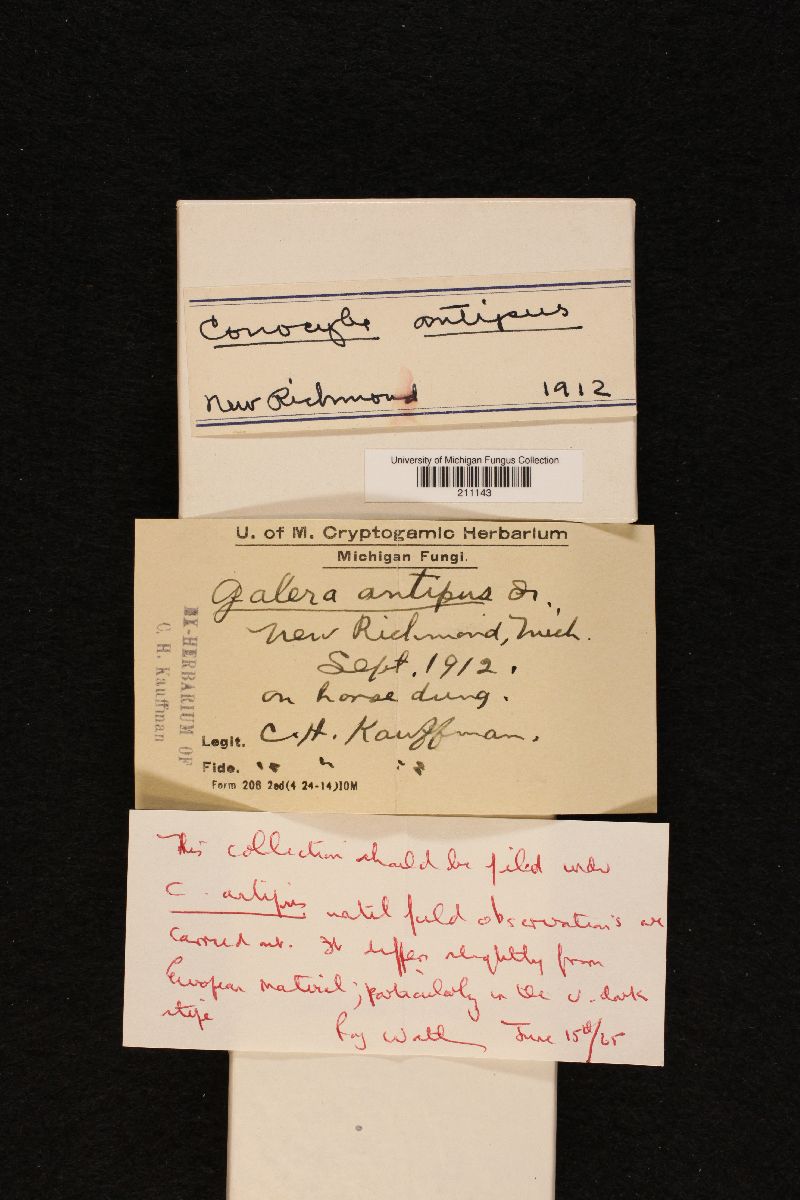 Conocybe antipus
New Richmond 1912
University of Michigan Fungus Collection
211143
U. of M. Cryptogamic Herbarium
Michigan Fungi.
Galera antipus Fr.
New Richmond, Mich.
Sept. 1912.
on horse dung.
Legit. C.H. Kauffman.
Fide. " " "
Form 206 2ed(4 24-14)10M
EX-HERBARIUM OF
C. H. Kauffman
This collection should be filed under
C. antipus until field observations are
carried out. It differs slightly from
European material; particularly in the v. dark
stipe
Roy Watling June 15th/65